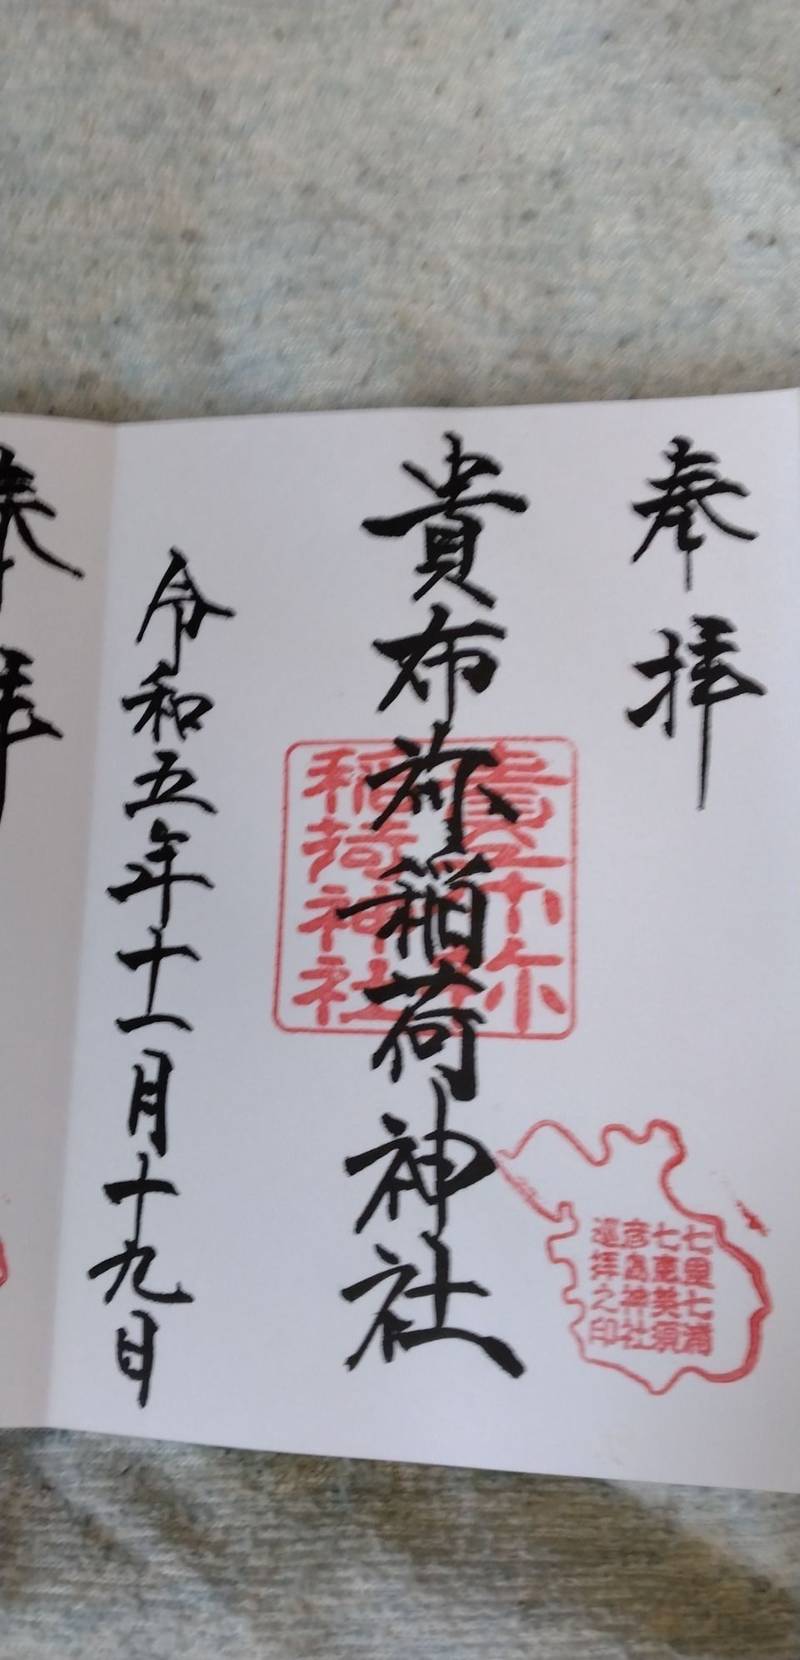 奉拝
七里七浦
七恵美須
彦島神社
巡拝之印
貴布祢稲荷神社
稲荷神社
令和五年十一月十九日
奉拝